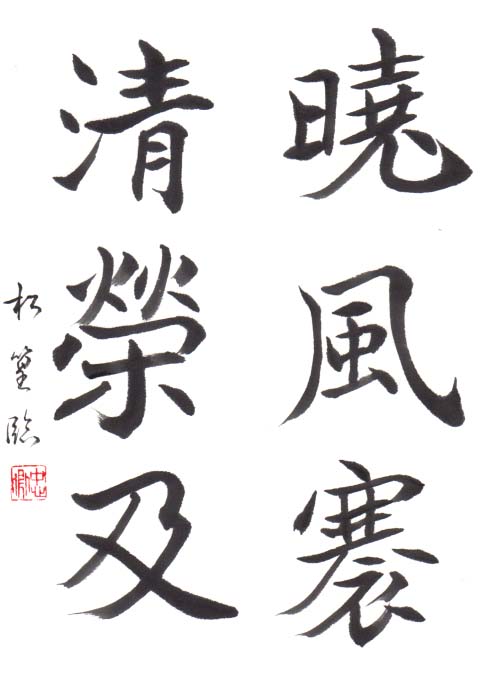 曉風褰
清榮及
松篁臨